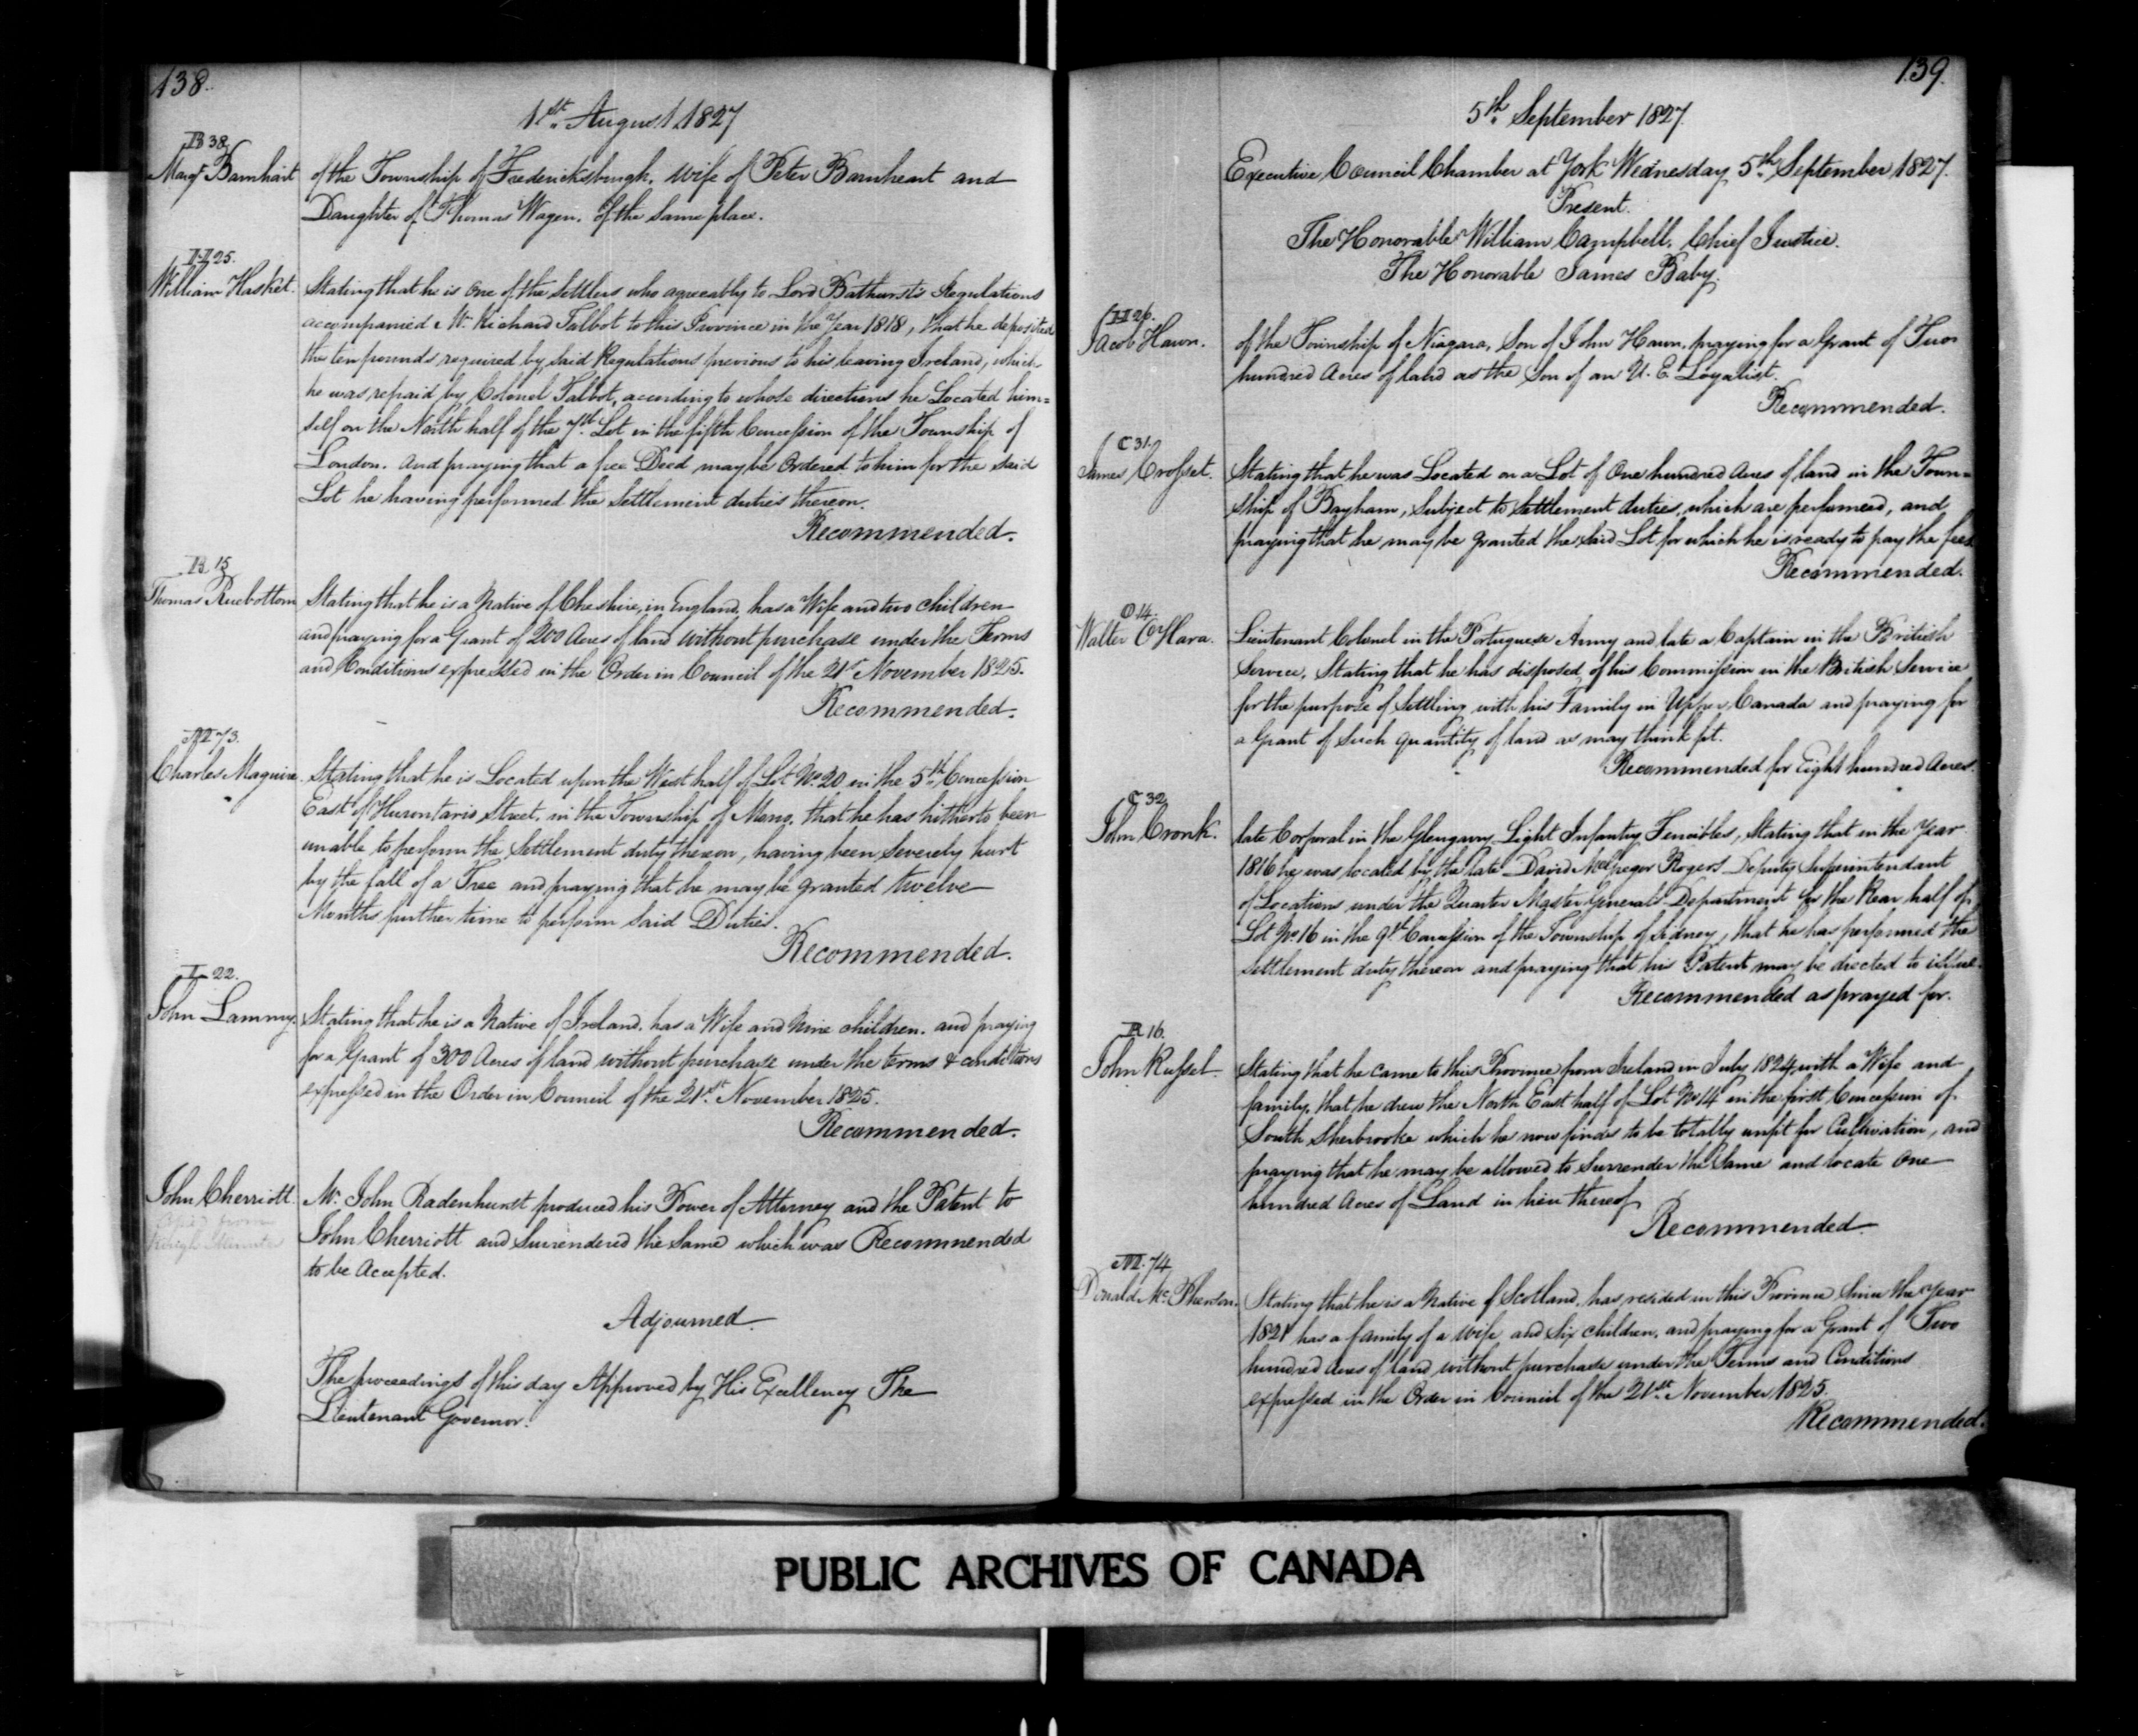 138.
1st. August 1827
B 38
Margt. Barnhart
of the Township of Fredericksburgh. Wife of Peter Barnheart and
Daughter of Thomas Wagen. of the same place.
H 25.
William Hasket.
Stating that he is one of the Settlers who agreeably to Lord Bathurst's Regulations
accompanied Mr. Richard Talbot to this Province in the Year 1818, that he deposited
the ten pounds required by said Regulations previous to his leaving Ireland, which
he was repaid by Colonel Talbot, according to whose directions he Located him=
self on the North half of the 7th. Lot in the fifth Concession of the Township of
London. And praying that a free Deed may be Ordered to him for the said
Lot he having performed the Settlement duties thereon.
Recommended.
R 15
Thomas Ruebottom
Stating that he is a Native of Cheshire, in England, has a Wife and two children
and praying for a Grant of 200 Acres of land without purchase under the Terms
and Conditions expressed in the Order in Council of the 21st November 1825.
Recommended.
M 73.
Charles Maguire.
Stating that he is Located upon the West half of Lot No. 20 in the 5th. Concession
East of Hurontario Street, in the Township of Mono. that he has hitherto been
unable to perform the Settlement duty thereon, having been severely hurt
by the fall of a Tree and praying that he may be granted twelve
Months further time to perform said Duties.
Recommended.
L 22.
John Lammy.
Stating that he is a Native of Ireland. has a Wife and Nine children. and praying
for a Grant of 300 Acres of land without purchase under the terms & conditions
expressed in the Order in Council of the 21st. November 1825.
Recommended.
John Cherriott.
Copied from
Rough Minute
Mr. John Radenhurst produced his Power of Attorney and the Patent to
John Cherriott and Surrendered the Same which was Recommended
to be Accepted.
Adjourned.
The proceedings of this day Approved by His Excellency The
Lieutenant Governor.
139.
5th. September 1827.
Executive Council Chamber at York Wednesday 5th. September 1827.
Present.
The Honorable William Campbell, Chief Justice.
The Honorable James Baby.
H 26.
Jacob Hawn.
of the Township of Niagara, Son of John Hawn, praying for a Grant of Two
hundred Acres of land as the Son of an U. E. Loyalist.
Recommended.
C 31.
James Crosset.
Stating that he was Located on a Lot of One hundred Acres of land in the Town=
ship of Bayham, subject to Settlement duties, which are performed, and
praying that he may be granted the said Lot for which he is ready to pay the fees
Recommended.
O 14.
Walter O'Hara.
Lieutenant Colonel in the Portuguese Army and late a Captain in the British
Service, Stating that he has disposed of his Commission in the British Service
for the purpose of Settling with his Family in Upper Canada and praying for
a Grant of such quantity of land as may think fit.
Recommended for Eight hundred Acres.
C 32
John Cronk.
late Corporal in the Glengarry Light Infantry Fencibles, Stating that in the Year
1816 he was located by the late David McGregor Rogers Deputy Superintendant
of Locations under the Quarter Master General's Department for the Rear half of
Lot No. 16 in the 9th Concession of the Township of Sidney, that he has performed the
Settlement duty thereon and praying that his Patent may be directed to issue.
Recommended as prayed for.
R 16.
John Russel.
Stating that he came to this Province from Ireland in July 1824 with a Wife and
family, that he drew the North East half of Lot No 14 in the first Concession of
South Sherbrooke which he now finds to be totally unfit for Cultivation, and
praying that he may be allowed to Surrender the Same and locate One
hundred Acres of Land in lieu thereof
Recommended.
M. 74
Donald McPherson.
Stating that he is a Native of Scotland, has resided in this Province Since the Year
1821 has a family of a wife and six children, and praying for a Grant of Two
hundred acres of land without purchase under the Terms and Conditions
expressed in the Order in Council of the 21st. November 1825.
Recommended.
PUBLIC ARCHIVES OF CANADA